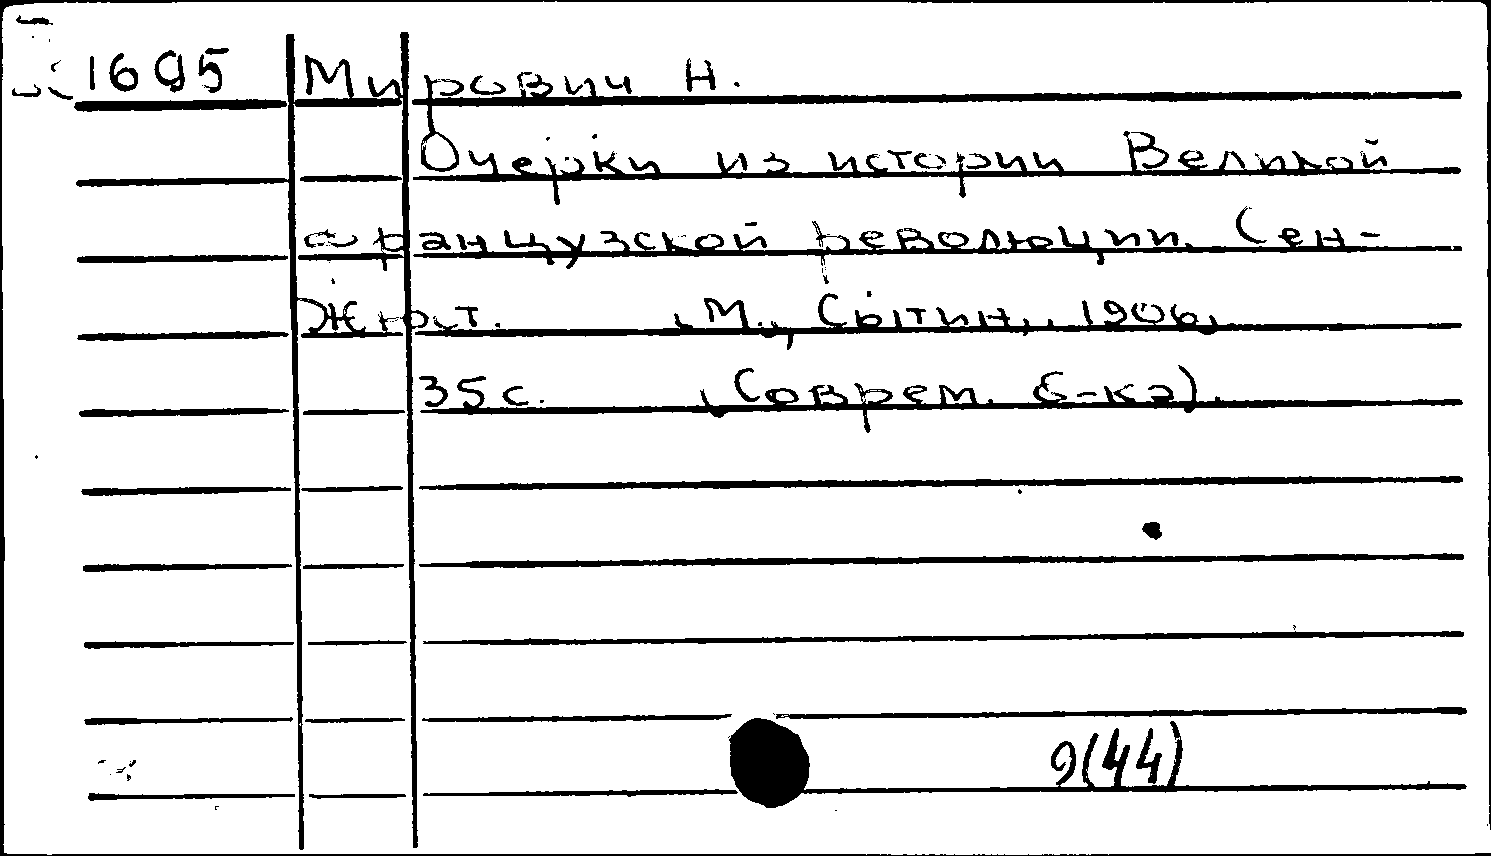 1695 Мирович Н.
Очерки из истории Великой
французской революции. Сен-
Жюст. М., Сытин, 1906,
35 с. (Соврем. б-ка).
9(44)